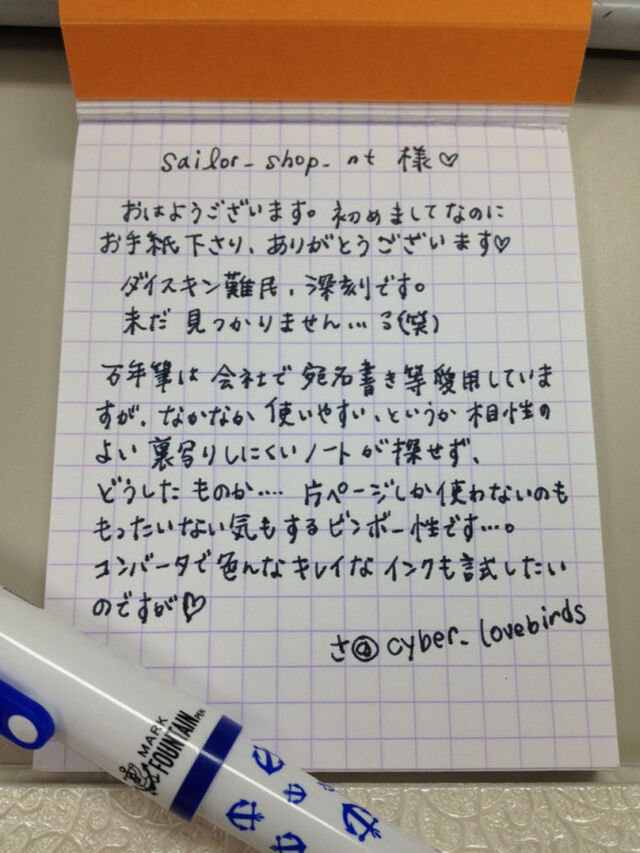 sailor_shop_nt 様♡
おはようございます。初めましてなのに
お手紙下さり、ありがとうございます♡
ダイスキン難民、深刻です。
未だ見つかりません…る(笑)
万年筆は会社で宛名書き等愛用していま
すが、なかなか使いやすい、というか相性の
よい裏写りしにくいノートが探せず、
どうしたものか‥‥片ページしか使わないのも
もったいない気もするビンボー性です…。
コンバータで色んなキレイなインクも試したい
のですが♡
さ@cyber_lovebirds
MARK
FOUNTAIN PEN